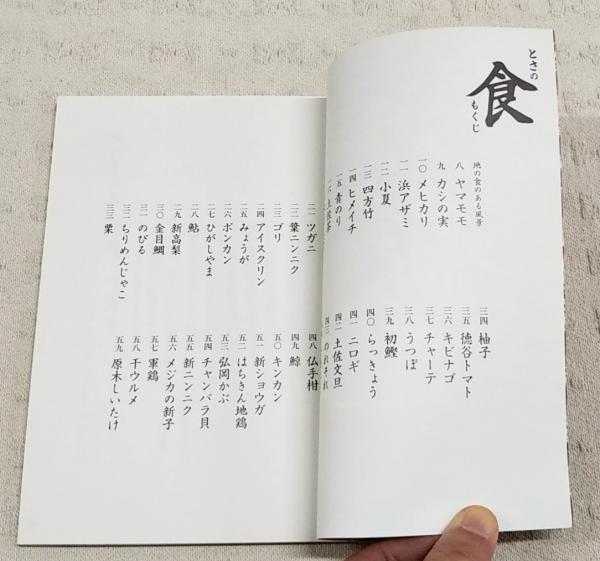 とさの
食
もくじ
地の食のある風景
八 ヤマモモ
九 カシの実
一〇 メヒカリ
一一 浜アザミ
一二 小夏
一三 四方竹
一四 ヒメイチ
一五 青のり
一六 土佐茶
三四 柚子
三五 徳谷トマト
三六 キビナゴ
三七 チャーテ
三八 うつぼ
三九 初鰹
四〇 らっきょう
四一 ニロギ
四二 土佐文旦
四三 のれそれ
二一 ツガニ
二二 葉ニンニク
二三 ゴリ
二四 アイスクリン
二五 みょうが
二六 ポンカン
二七 ひがしやま
二八 鮎
二九 新高梨
三〇 金目鯛
三一 のびる
三二 ちりめんじゃこ
三三 栗
四八 仏手柑
四九 鯨
五〇 キンカン
五一 新ショウガ
五二 はちきん地鶏
五三 弘岡かぶ
五四 チャンバラ貝
五五 新ニンニク
五六 メジカの新子
五七 軍鶏
五八 干ウルメ
五九 原木しいたけ